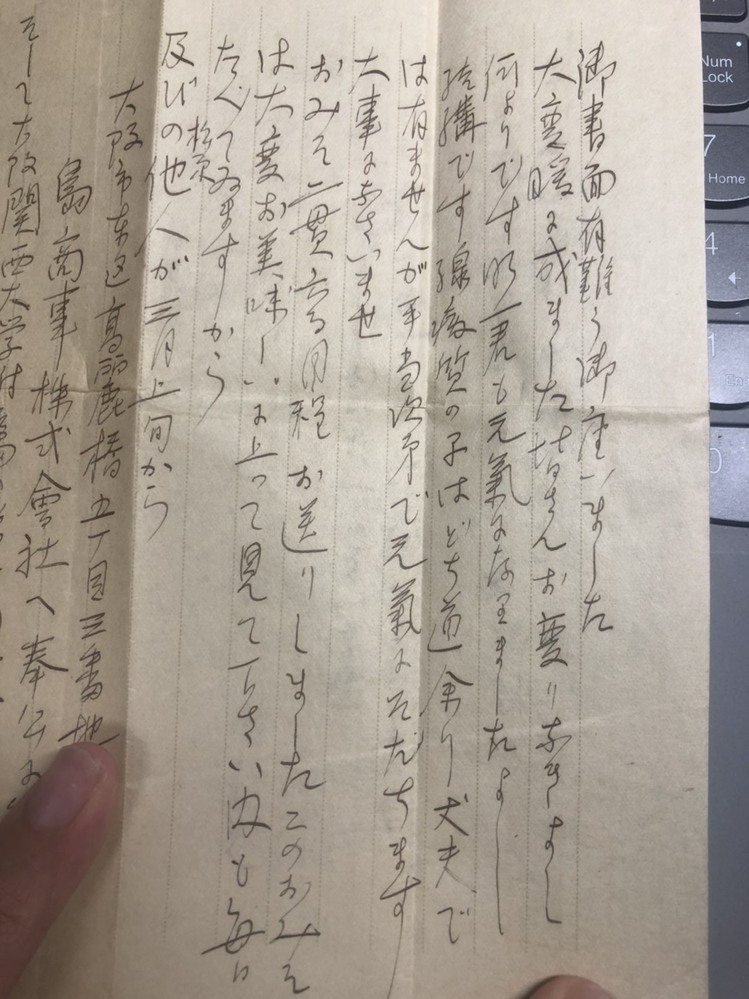 御書面有難う御座いました
大変暖に成ました皆さんお変りなきよし
何よりです 一君も元氣になりましたよし
結構です腺病質の子はどち道余り丈夫で
は有ませんが手当次第で元氣にそだちます
大事になさいませ
おみそ二貫六百目程お送りしましたこのおみそ
は大変お美味しいに上って見て下さい 母も毎日
たべてゐますから
松原
及びの他人が三月上旬から
大阪市東区高麗橋五丁目三番地
島商事株式會社へ奉公に
そして大阪関西大学
Num
Lock
7
Home
4
1
0